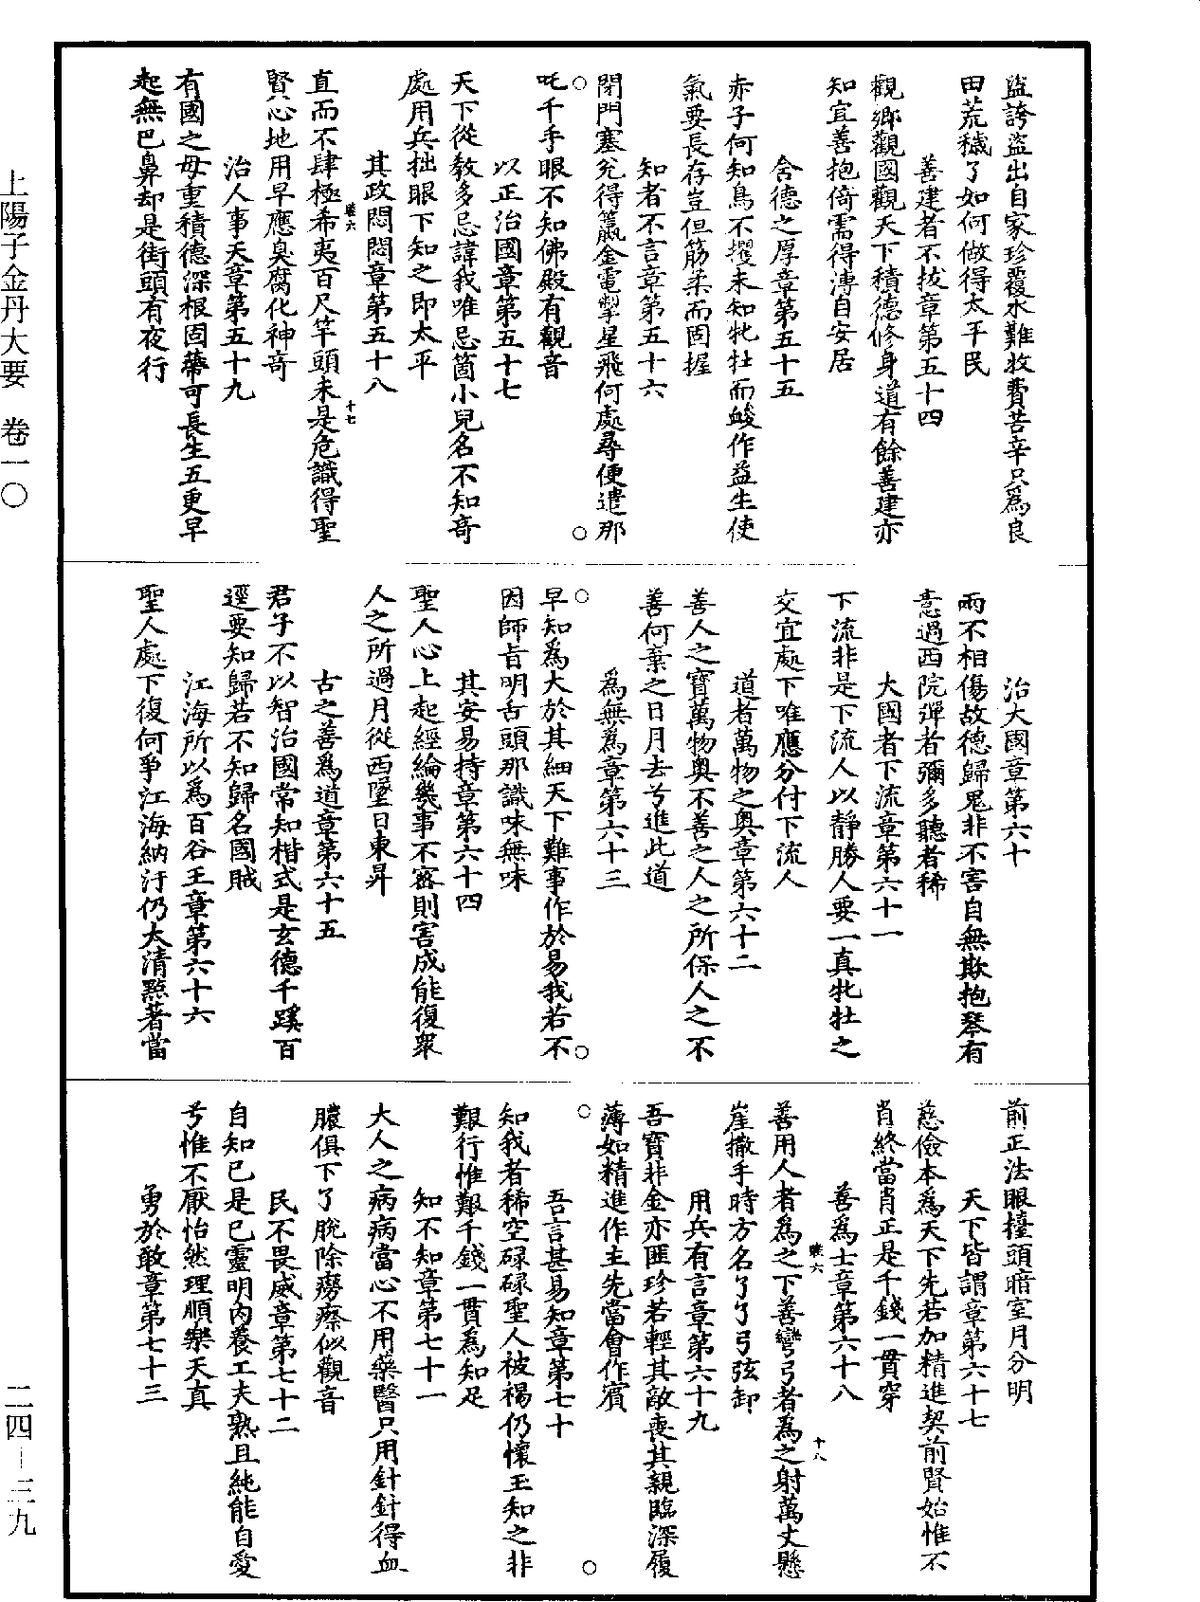 盜誇盜出自家珍覆水難收費苦辛只為良
田荒穢了如何做得太平民
善建者不拔章第五十四
觀鄉觀國觀天下積德修身道有餘善建亦
知宜善抱倚需得溥自安居
含德之厚章第五十五
赤子何知鳥不攫未知牝牡而䘒作益生使
氣要長存豈但筋柔而固握
知者不言章第五十六
閉門塞兊得籯金電掣星飛何處尋便遣那
吒千手眼不知佛殿有觀音
以正治國章第五十七
天下從教多忌諱我唯忌箇小兒名不知奇
處用兵拙眼下知之即太平
其政悶悶章第五十八
直而不肆極希夷百尺竿頭未是危識得聖
賢心地用早應臭腐化神奇
治人事天章第五十九
有國之母重積德深根固蔕可長生五更早
起無巴鼻却是街頭有夜行
治大國章第六十
兩不相傷故德歸鬼非不害自無欺抱琴有
意過西院彈者彌多聽者稀
大國者下流章第六十一
下流非是下流人以靜勝人要一真牝牡之
交宜處下唯應分付下流人
道者萬物之奥章第六十二
善人之寶萬物奥不善之人之所保人之不
善何棄之日月去兮進此道
為無為章第六十三
早知為大於其細天下難事作於易我若不
因師旨明舌頭那識味無味
其安易持章第六十四
聖人心上起經綸幾事不密則害成能復衆
人之所過月從西墜日東昇
古之善為道章第六十五
君子不以智治國常知楷式是玄德千蹊百
逕要知歸若不知歸名國賊
江海所以為百谷王章第六十六
聖人處下復何爭江海納汙仍太清㸃著當
前正法眼擡頭暗室月分明
天下皆謂章第六十七
慈儉本為天下先若加精進契前賢始惟不
肖終當肖正是千錢一貫穿
善為士章第六十八
善用人者為之下善彎弓者為之射萬丈懸
崖撒手時方名了了弓弦卸
用兵有言章第六十九
吾寶非金亦匪珍若輕其敵喪其親臨深履
薄如精進作主先當會作賓
吾言甚易知章第七十
知我者稀空碌碌聖人被褐仍懷玉知之非
艱行惟艱千錢一貫為知足
知不知章第七十一
大人之病病當心不用藥醫只用針針得血
膿俱下了脫除癆瘵似觀音
民不畏威章第七十二
自知已是已靈明内養工夫熟且純能自愛
兮惟不厭怡然理順樂天真
勇於敢章第七十三
上陽子金丹大要 卷一〇
二四—三九